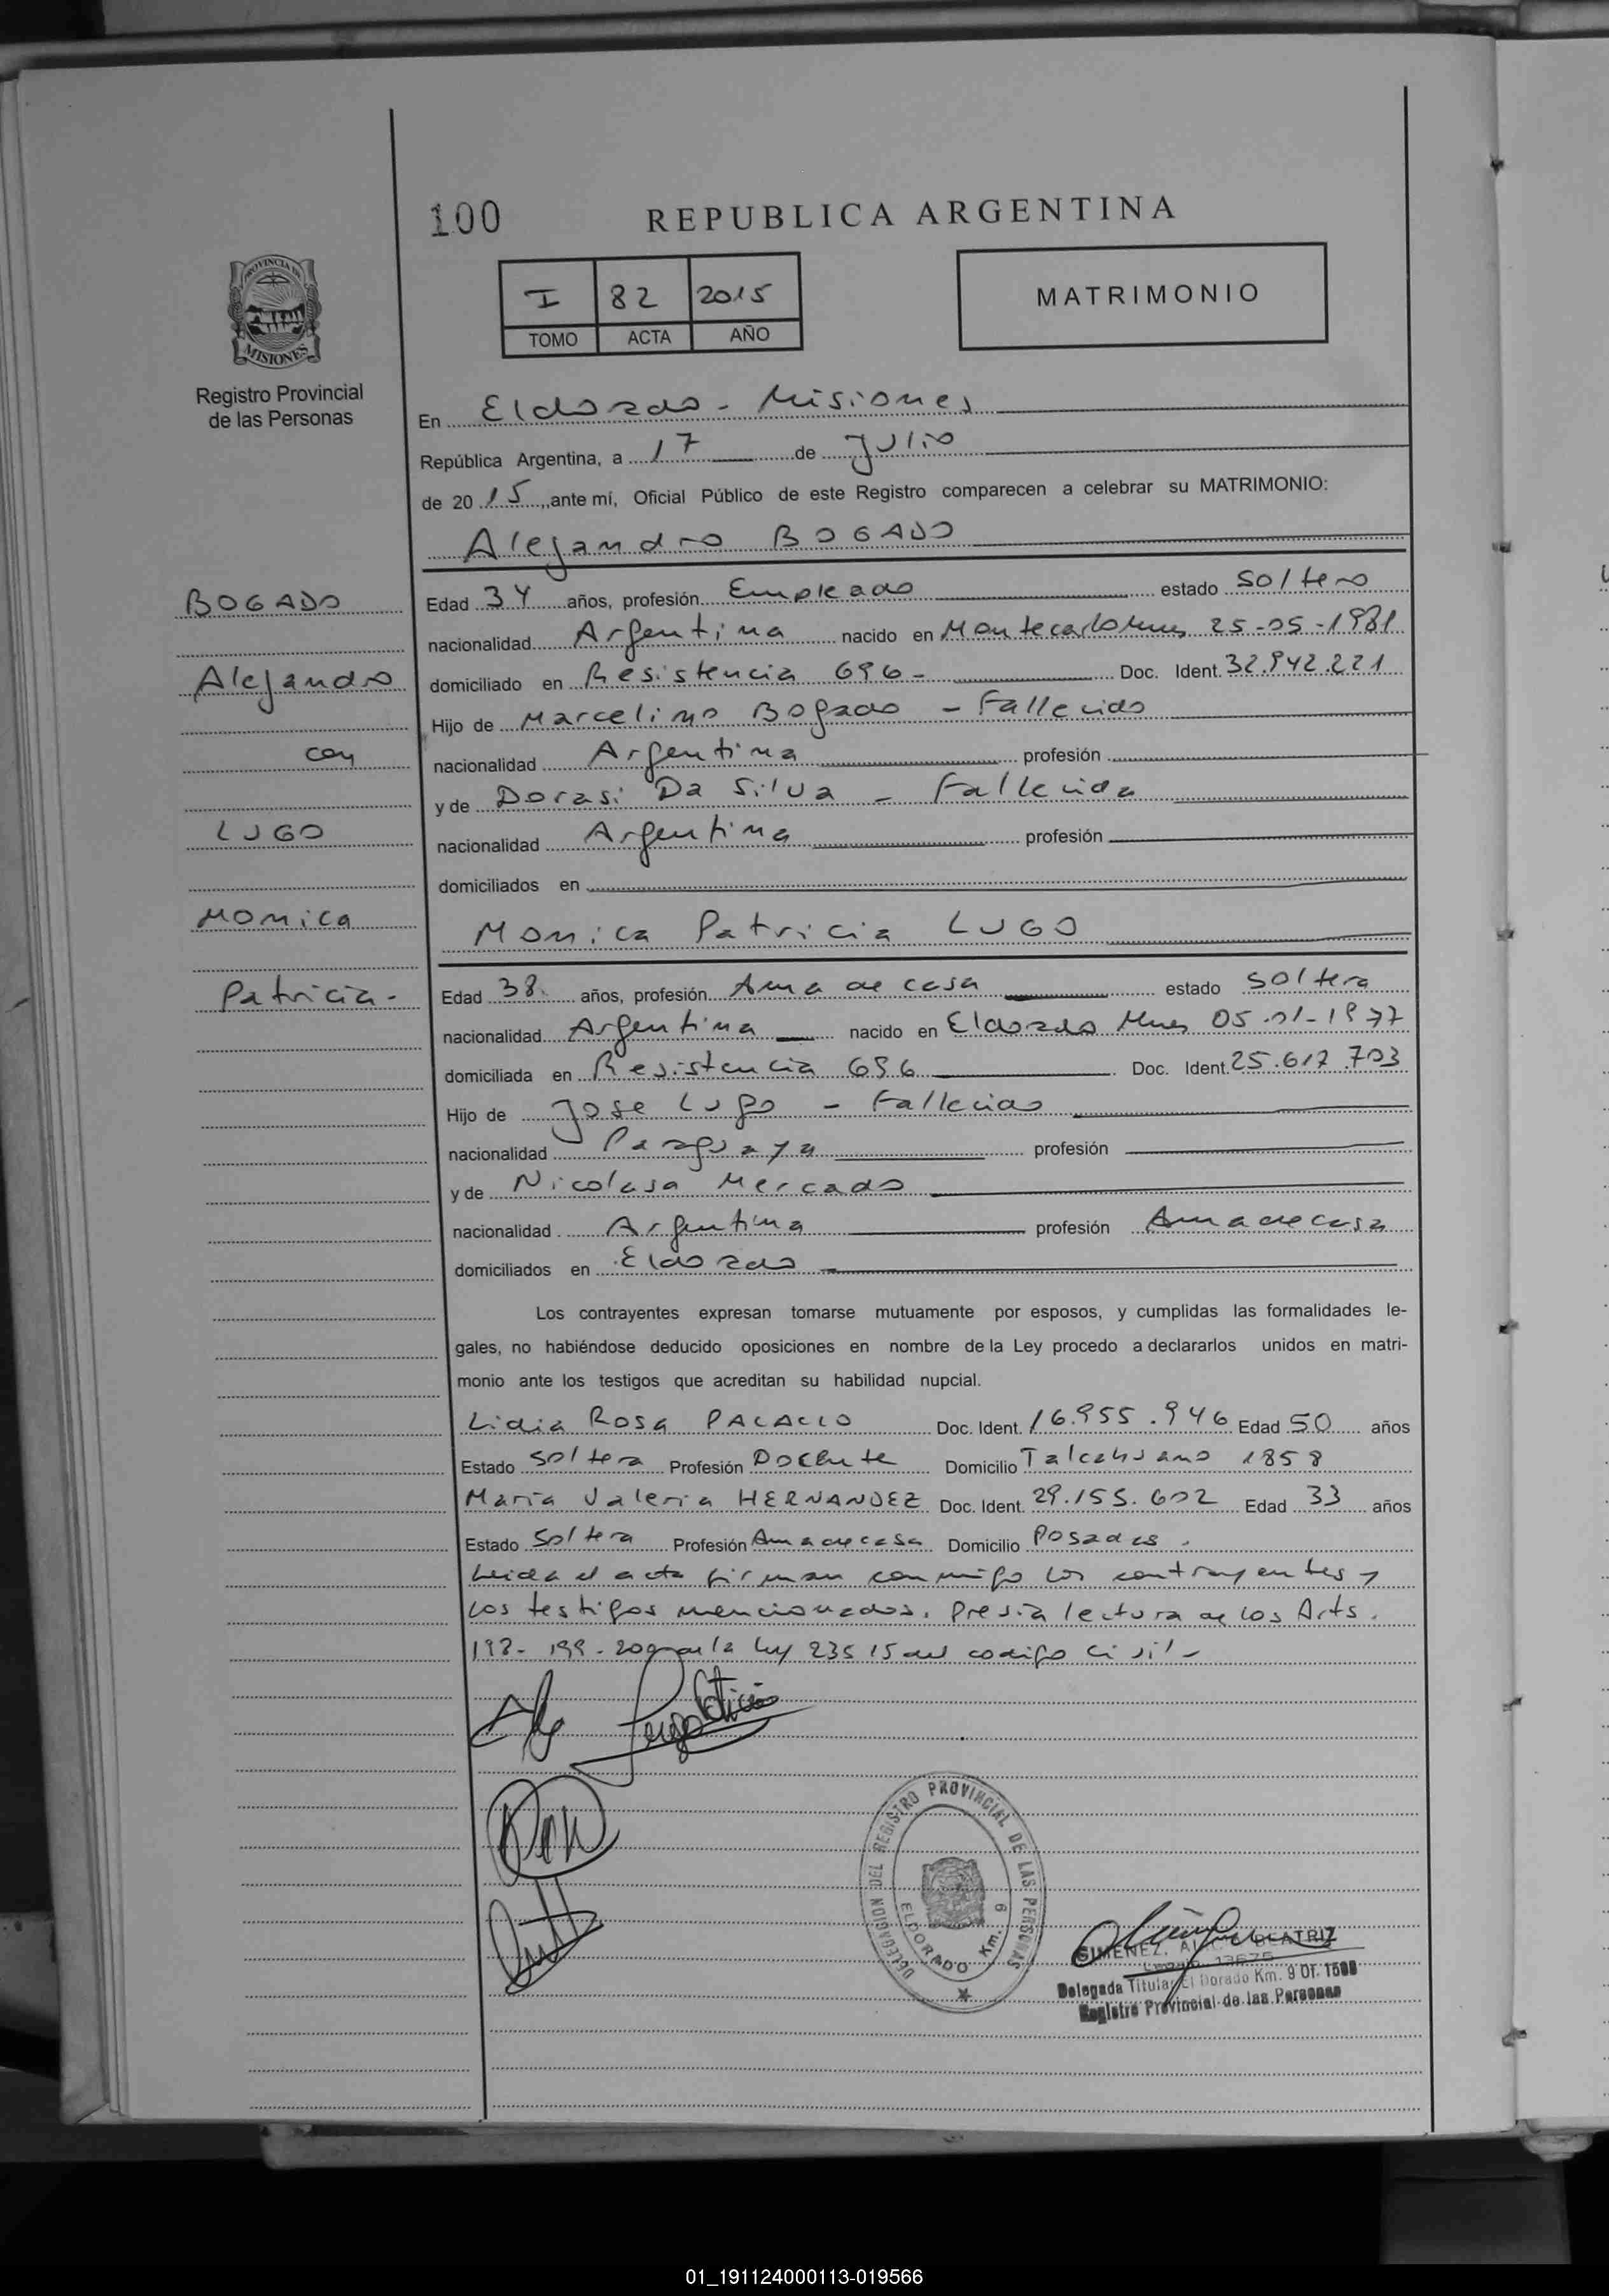 100
REPUBLICA ARGENTINA
PROVINCIA DE
MISIONES
Registro Provincial
de las Personas
I 82 2015
TOMO ACTA AÑO
MATRIMONIO
En Eldorado - Misiones
República Argentina, a 17 de Julio
de 20 15 ,ante mí, Oficial Público de este Registro comparecen a celebrar su MATRIMONIO:
Alejandro BOGADO
BOGADO
Alejandro
con
LUGO
Monica
Patricia -
Edad 34 años, profesión Empleado estado Soltero
nacionalidad Argentina nacido en Montecarlo Mnes 25-05-1981
domiciliado en Resistencia 696 - Doc. Ident. 32.942.221
Hijo de Marcelino Bogado - Fallecido
nacionalidad Argentina profesión
y de Dorasi Da Silva - Fallecida
nacionalidad Argentina profesión
domiciliados en
Monica Patricia LUGO
Edad 38 años, profesión Ama de casa estado Soltera
nacionalidad Argentina nacido en Eldorado Mnes 05-01-1977
domiciliada en Resistencia 696 Doc. Ident. 25.617.703
Hijo de Jose Lugo - Fallecido
nacionalidad Paraguaya profesión
y de Nicolasa Mercado
nacionalidad Argentina profesión Ama de casa
domiciliados en Eldorado
Los contrayentes expresan tomarse mutuamente por esposos, y cumplidas las formalidades le-
gales, no habiéndose deducido oposiciones en nombre de la Ley procedo a declararlos unidos en matri-
monio ante los testigos que acreditan su habilidad nupcial.
Lidia Rosa PALACIO Doc. Ident. 16.955.946 Edad 50 años
Estado Soltera Profesión Docente Domicilio Talcahuano 1858
Maria Valeria HERNANDEZ Doc. Ident. 29.155.602 Edad 33 años
Estado Soltera Profesión Ama de casa Domicilio Posadas.
Leida el acta firman conmigo los contrayentes y
los testigos mencionados. Previa lectura de los Arts.
198- 199- 200 de la ley 23515 del codigo Civil -
DELEGACION DEL REGISTRO PROVINCIAL DE LAS PERSONAS
ELDORADO Km. 9
GIMENEZ, BEATRIZ
Delegada Titular El Dorado Km. 9 Of.
Registro Provincial de las Personas
01_191124000113-019566